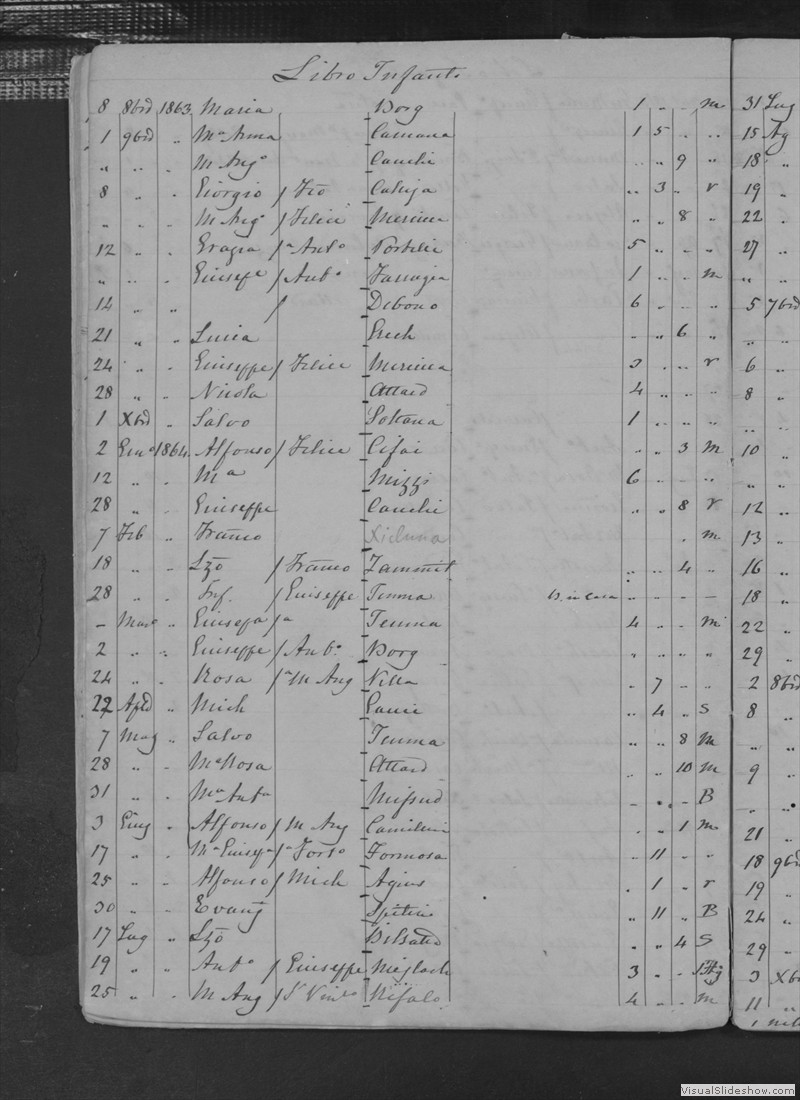 Libro Infanti
8 8bre 1863 Maria Borg 1 " " m 31 Lug
1 9bre " Ma Anna Camana 1 5 " " 15 Ag
" " " M Anga " " 9 " 18 "
8 " " Giorgio / Calleja " 3 " r 19 "
" " " M Anga / Felice " " 8 " 22 "
12 " " Grazia / a Anto Portelli 5 " " " 27 "
" " " Giusepe / Anto Farrugia 1 " " m " "
14 " " / Debono 6 " " " 5 7bre
21 " " Lucia Grech " " 6 " " "
24 " " Giuseppe / Felice 3 " " r 6 "
28 " " Nicola Attard 4 " " " 8 "
1 Xbre " Salvo Soltana 1 " " " " "
2 Geno 1864 Alfonso / Felice Cifai " " 3 m 10 "
12 " " Ma Mizzi 6 " " " " "
28 " " Giuseppe " " 8 r 12 "
7 Feb " Franco Xicluna " m 13 "
18 " " Lzo / Franco Zammit " " 4 " 16 "
28 " " Inf. / Giuseppe Temma b. in casa " " " " 18 "
" Marzo " Giusepa / a Temma 4 " " m 22 "
2 " " Giuseppe / Anto Borg " " " " 29 "
24 " " Rosa / a M Ang Vella " 7 " " 2 8bre
22 Aple " Mich Gauci " 4 " S 8 "
7 Mag " Salvo Temma " " 8 m " "
28 " " Ma Rosa Attard " " 10 m 9 "
31 " " Ma Anta Mifsud " " " B " "
3 Giug " Alfonso / M Ang Camilleri " " 1 m 21 "
17 " " Ma Giusepa / a Formosa " 11 " " 18 9bre
25 " " Alfonso / Mich Agius " 1 " r 19 "
30 " " Evang Spiteri " 11 " B 24 "
17 Lug " Lzo " " 4 S 29 "
19 " " Anto / Giuseppe 3 " " 3 Xbre
25 " " M Ang / 4 " " m 11 "
VisualSlideshow.com